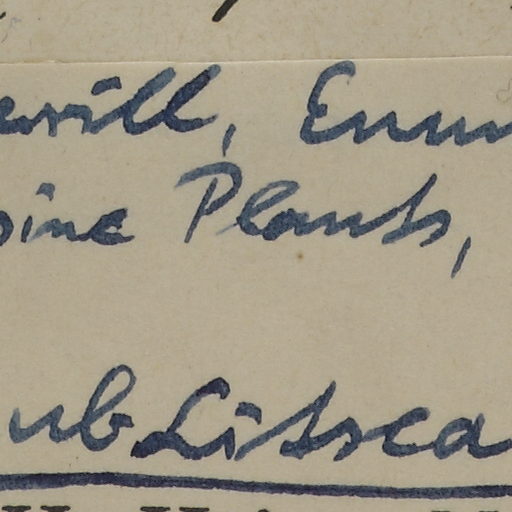 errill, Enum
pine Plants,
ub Litsea